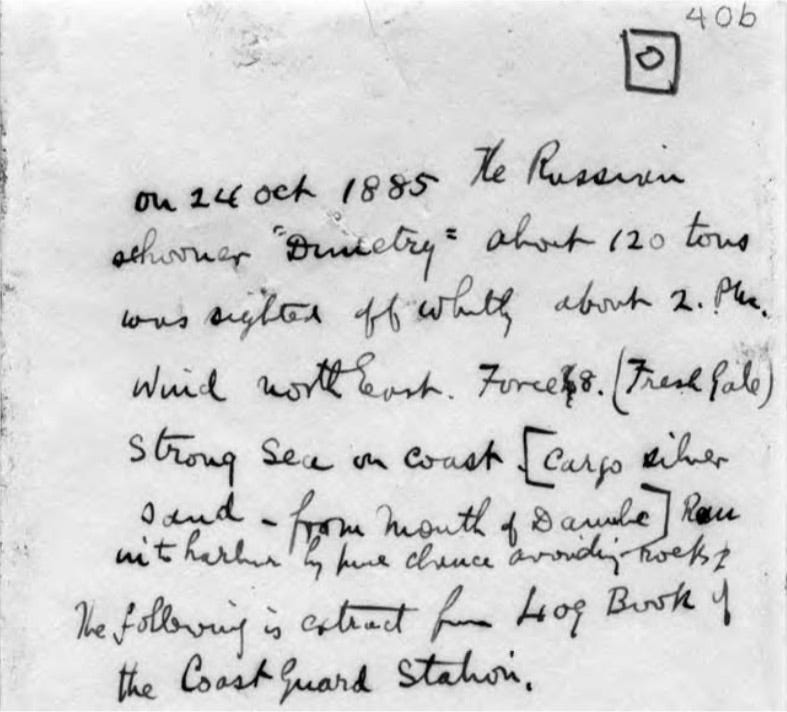 40b
O
on 24 Oct 1885 The Russian
schooner "Dimetry" about 120 tons
was sighted off Whitby about 2. P.M.
Wind north East. Force 8. (Fresh Gale)
Strong Sea on coast [Cargo silver
sand - from Mouth of Danube] Ran
into harbour by pure chance avoiding rocks
The following is extract from Log Book of
the Coast Guard Station.